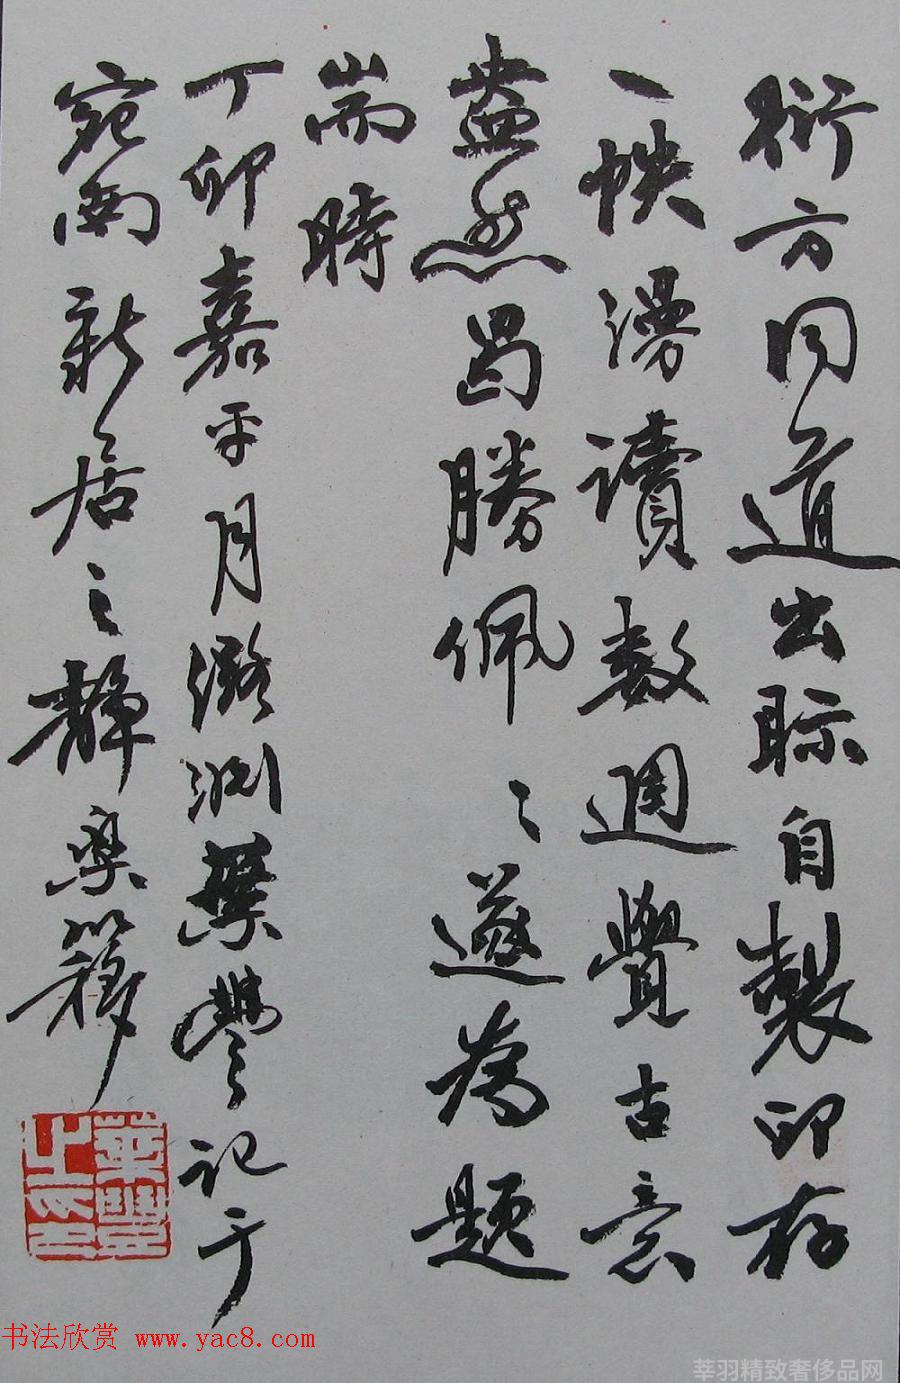 衍方同道出眎自製印存
一帙漫讀數週覺古意
盎然曷勝佩〻遂為題
耑時
丁卯嘉平月潞淵葉豐記于
宛南新居之靜樂簃
书法欣赏 www.yac8.com
莘羽精致奢侈品网